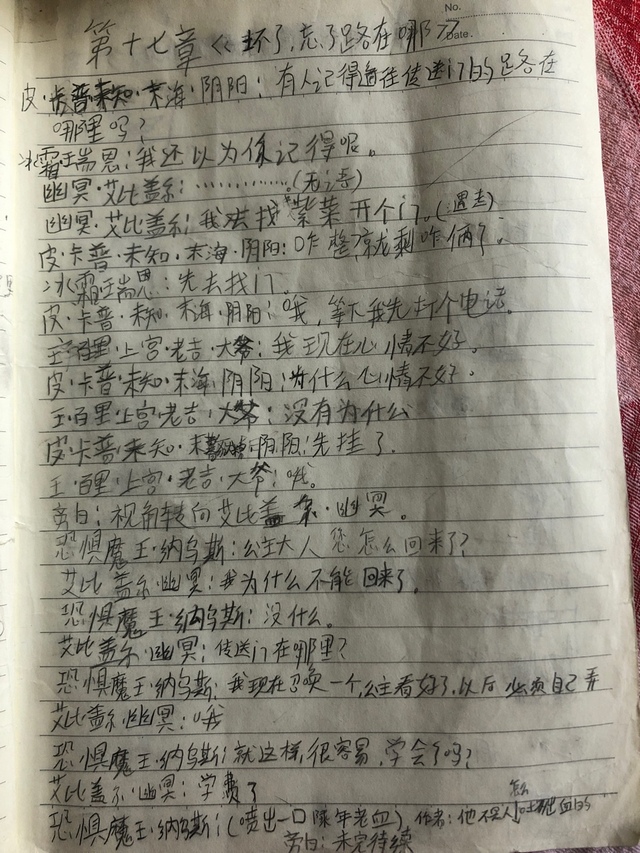 No.
Date.
第十七章《坏了,忘了路在哪了》
皮·卡普未知·末海·阴阳:有人记得通往传送门的路在
哪里吗?
冰霜王瑞恩:我还以为你记得呢。
幽冥·艾比盖尔:…………(无语)
幽冥·艾比盖尔:我去找紫菜开个门。(遇走)
皮·卡普·未知·末海·阴阳:咋整,就剩咋俩了。
冰霜王瑞恩:先去找门。
皮·卡普·未知·末海·阴阳:哦,等下我先打个电话。
王·百里·上宫·老吉·大爷:我现在心情不好。
皮·卡普·未知·末海·阴阳:为什么心情不好。
王·百里·上宫·老吉·大爷:没有为什么
皮·卡普·未知·末海·阴阳:先挂了.
王·百里·上宫·老吉·大爷:哦。
旁白:视角转向艾比盖尔·幽冥。
恐惧魔王·纳乌斯:公主大人您怎么回来了?
艾比盖尔·幽冥:我为什么不能回来了.
恐惧魔王·纳乌斯:没什么。
艾比盖尔·幽冥:传送门在哪里?
恐惧魔王·纳乌斯:我现在召唤一个,公主看好了,以后必须自己弄
艾比盖尔·幽冥:哦
恐惧魔王·纳乌斯:就这样,很容易,学会了吗?
艾比盖尔·幽冥:学费了
恐惧魔王·纳乌斯:(喷出一口陈年老血)作者:他不是人怎么吐出血的
旁白:未完待续